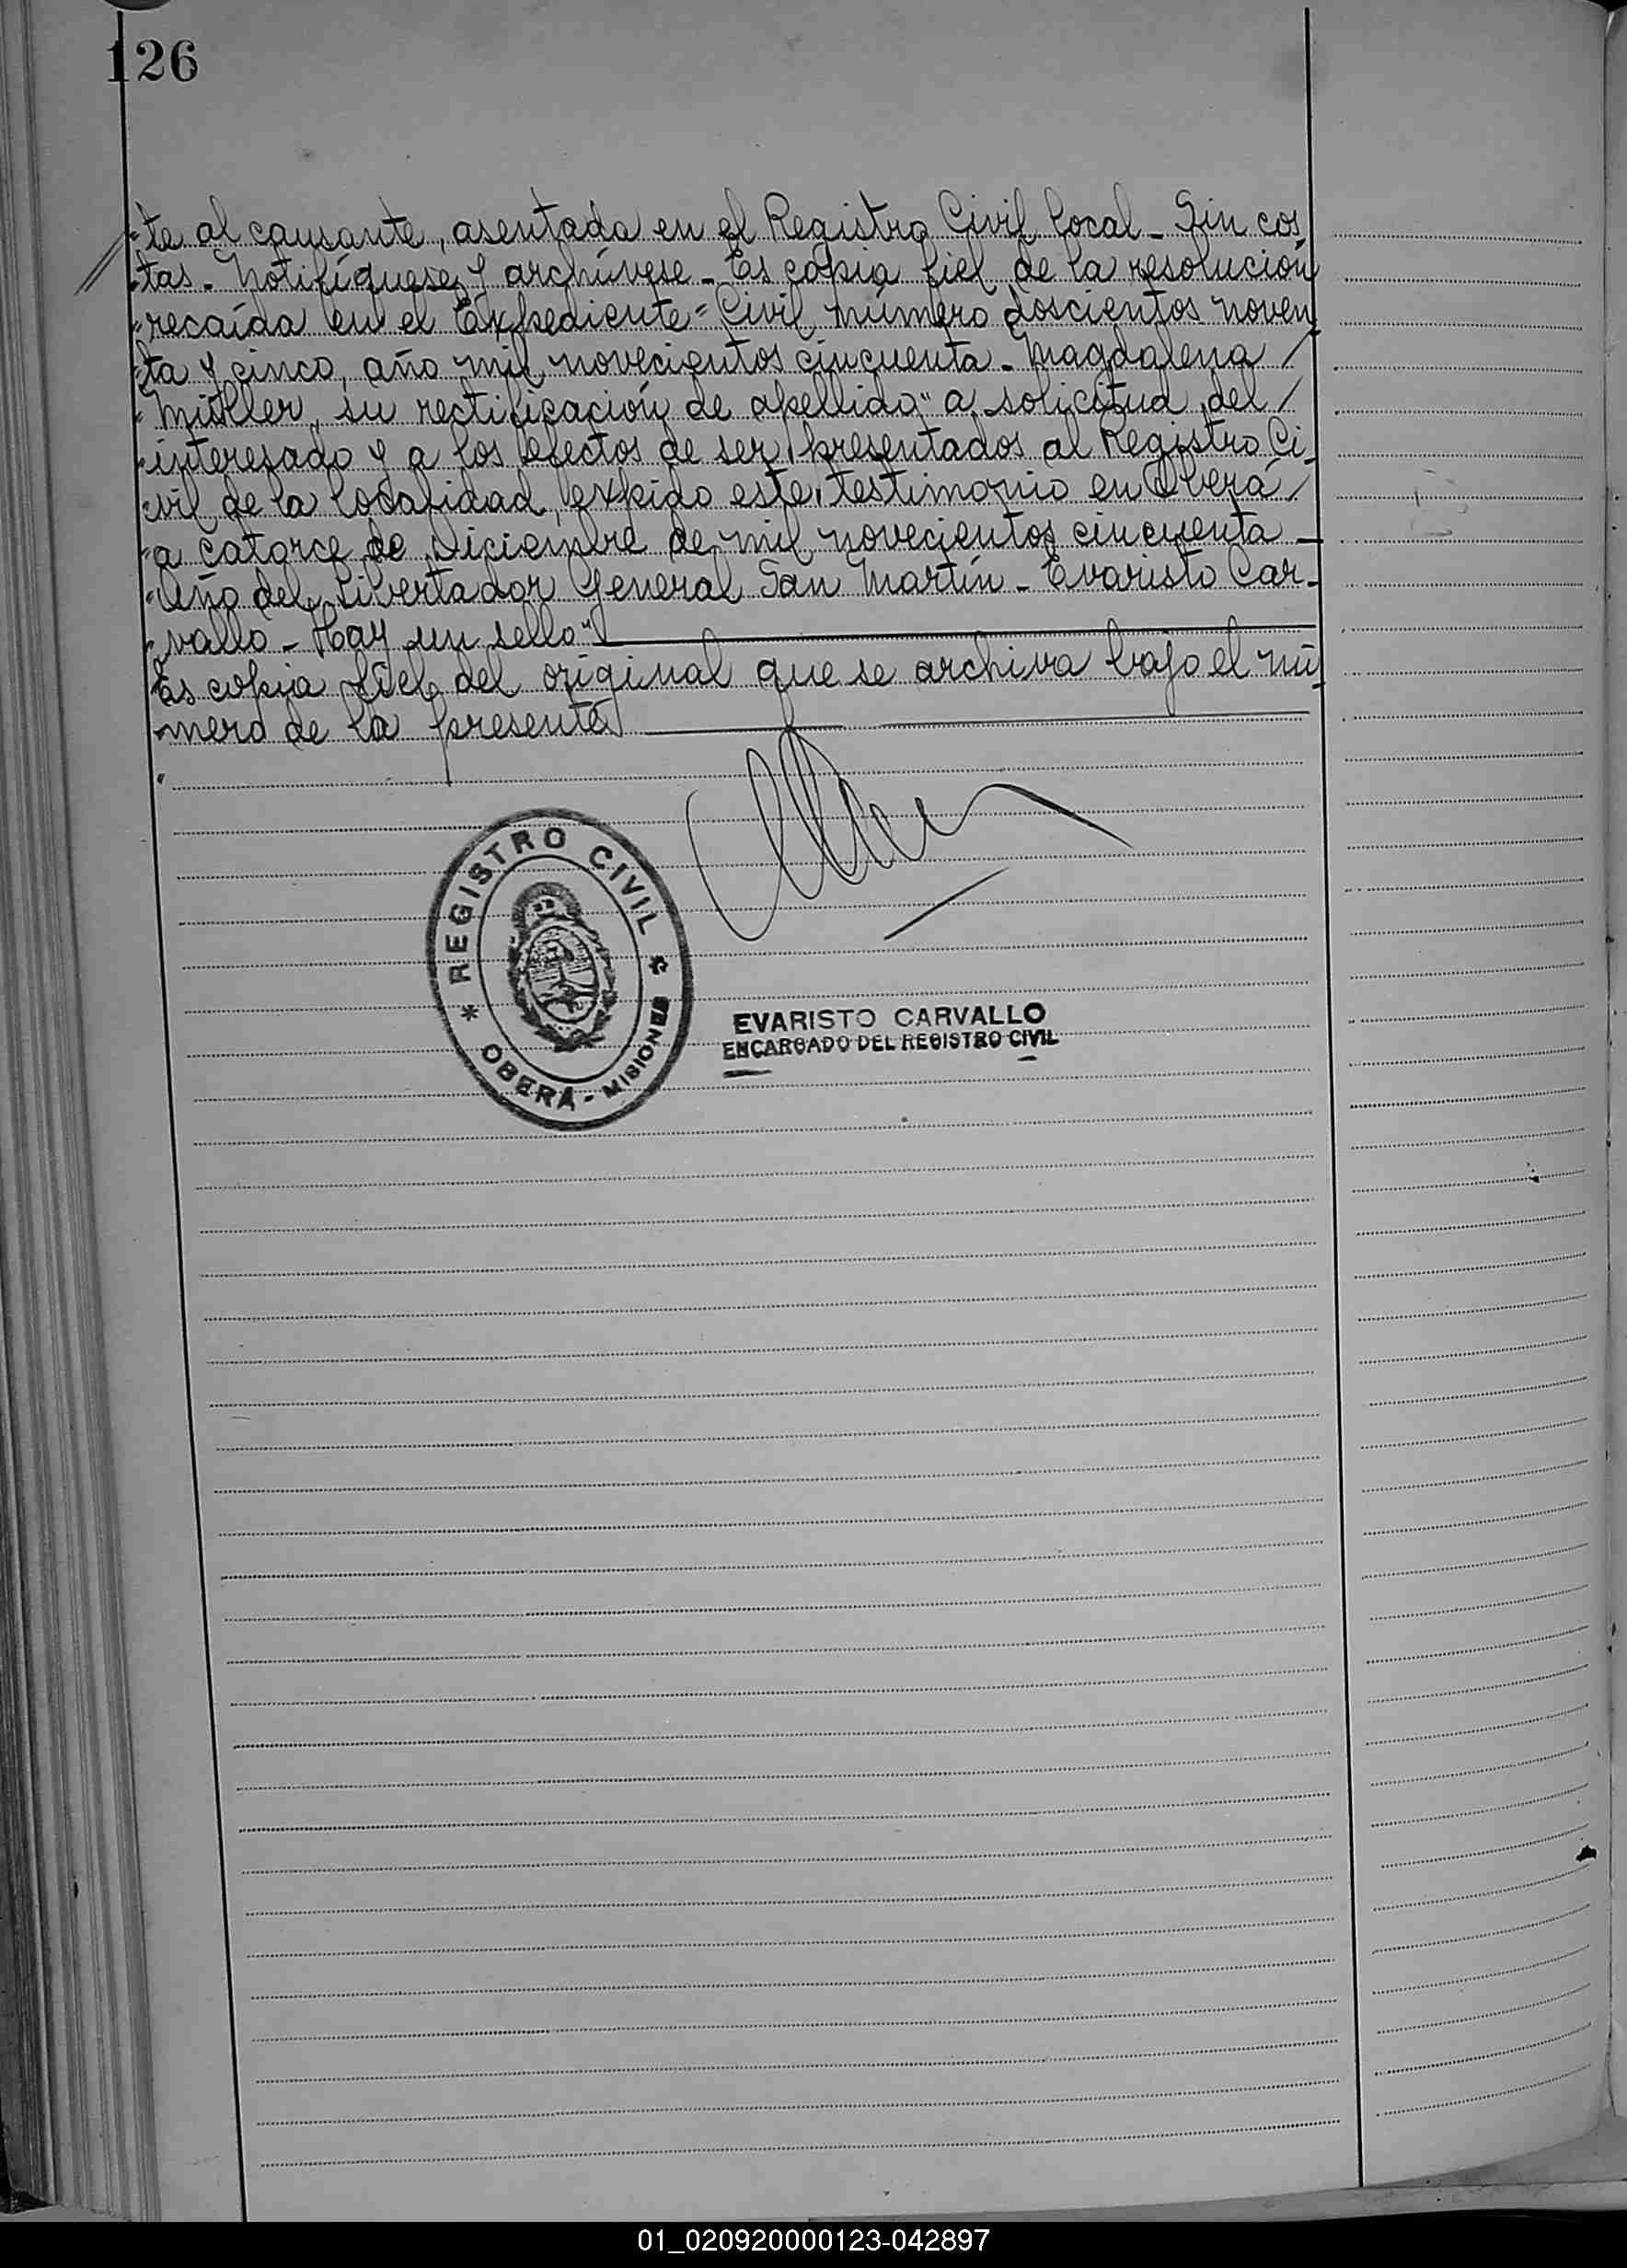 126
"te al causante, asentada en el Registro Civil local - Sin cos
"tas - Notifíquese y archívese - Es copia fiel de la resolución
"recaída en el Expediente = Civil número doscientos noven
"ta y cinco, año mil novecientos cincuenta - Magdalena /
"Müller, su rectificación de apellido" a solicitud del /
"interesado y a los efectos de ser presentados al Registro Ci
"vil de la localidad, expido este testimonio en Oberá /
"a catorce de Diciembre de mil novecientos cincuenta -
"Año del Libertador General San Martín - Evaristo Car-
"vallo - Hay un sello"
Es copia fiel del original que se archiva bajo el nú
mero de la presente
REGISTRO CIVIL
* OBERÁ - MISIONES *
EVARISTO CARVALLO
ENCARGADO DEL REGISTRO CIVIL
01_020920000123-042897